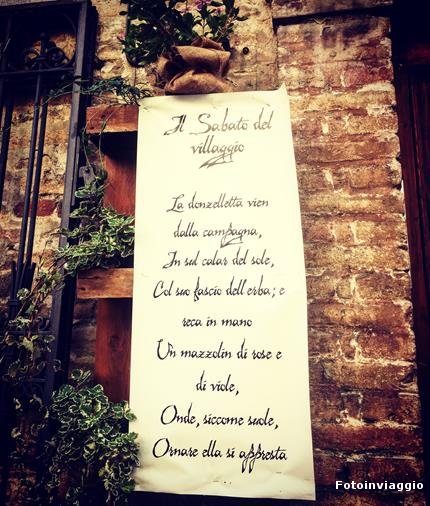 Il Sabato del
villaggio
La donzelletta vien
dalla campagna,
In sul calar del sole,
Col suo fascio dell'erba; e
reca in mano
Un mazzolin di rose e
di viole,
Onde, siccome suole,
Ornare ella si appresta
Fotoinviaggio